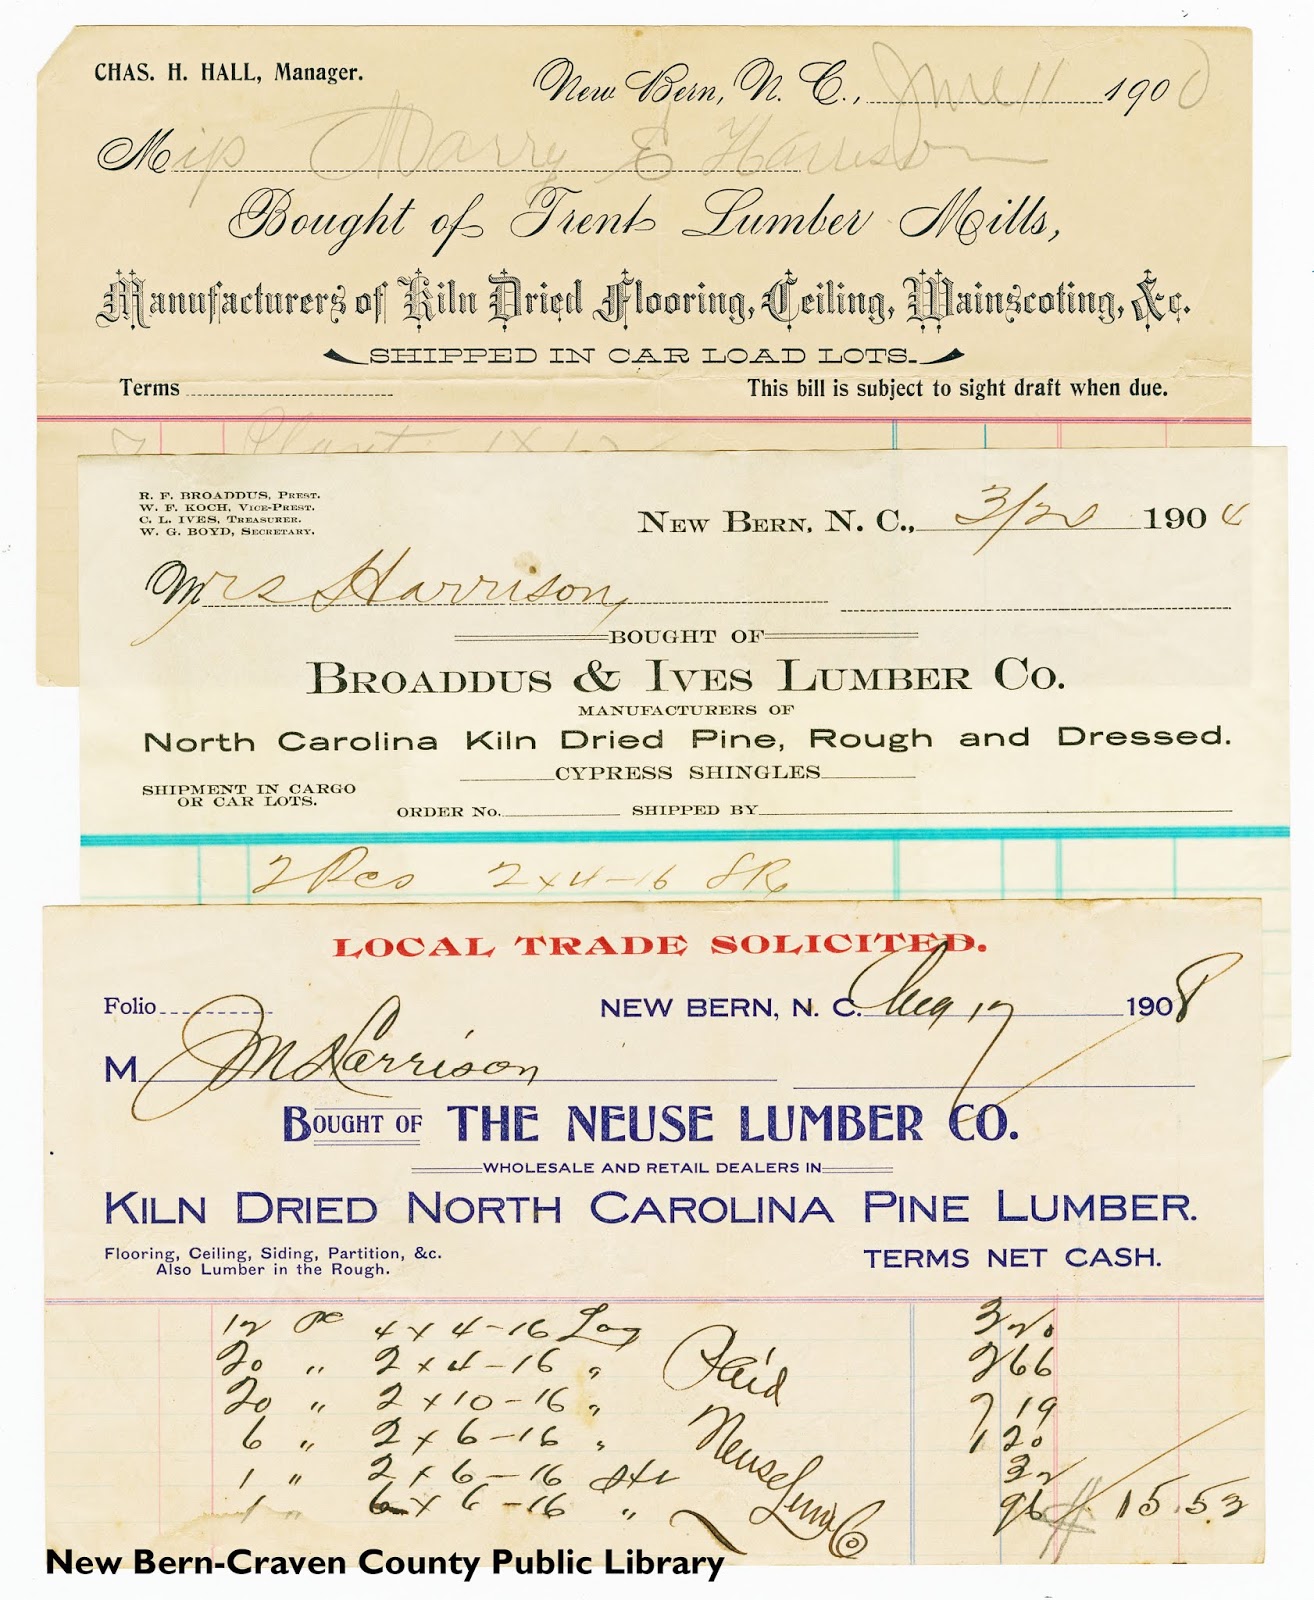 CHAS. H. HALL, Manager.
New Bern, N. C., June 11 1900
Miss Marry E Harrison
Bought of Trent Lumber Mills,
Manufacturers of Kiln Dried Flooring, Ceiling, Wainscoting, &c.
SHIPPED IN CAR LOAD LOTS.
Terms This bill is subject to sight draft when due.
R. F. BROADDUS, PREST.
W. F. KOCH, VICE-PREST.
C. L. IVES, TREASURER.
W. G. BOYD, SECRETARY.
NEW BERN, N. C., 3/20 1904
Mrs Harrison
BOUGHT OF
BROADDUS & IVES LUMBER CO.
MANUFACTURERS OF
North Carolina Kiln Dried Pine, Rough and Dressed.
CYPRESS SHINGLES
SHIPMENT IN CARGO
OR CAR LOTS.
ORDER NO. SHIPPED BY
2 Pcs 2x4-16
LOCAL TRADE SOLICITED.
Folio NEW BERN, N. C. Aug 17 1908
M J M Harrison
BOUGHT OF THE NEUSE LUMBER CO.
WHOLESALE AND RETAIL DEALERS IN
KILN DRIED NORTH CAROLINA PINE LUMBER.
Flooring, Ceiling, Siding, Partition, &c.
Also Lumber in the Rough.
TERMS NET CASH.
12 pc 4x4-16 3 20
20 " 2x4-16 " 2 66
20 " 2x10-16 " 7 19
6 " 2x6-16 " 1 20
1 " 2x6-16 32
1 " 6x6-16 " 96 15.53
Paid
Neuse Lum Co
New Bern-Craven County Public Library